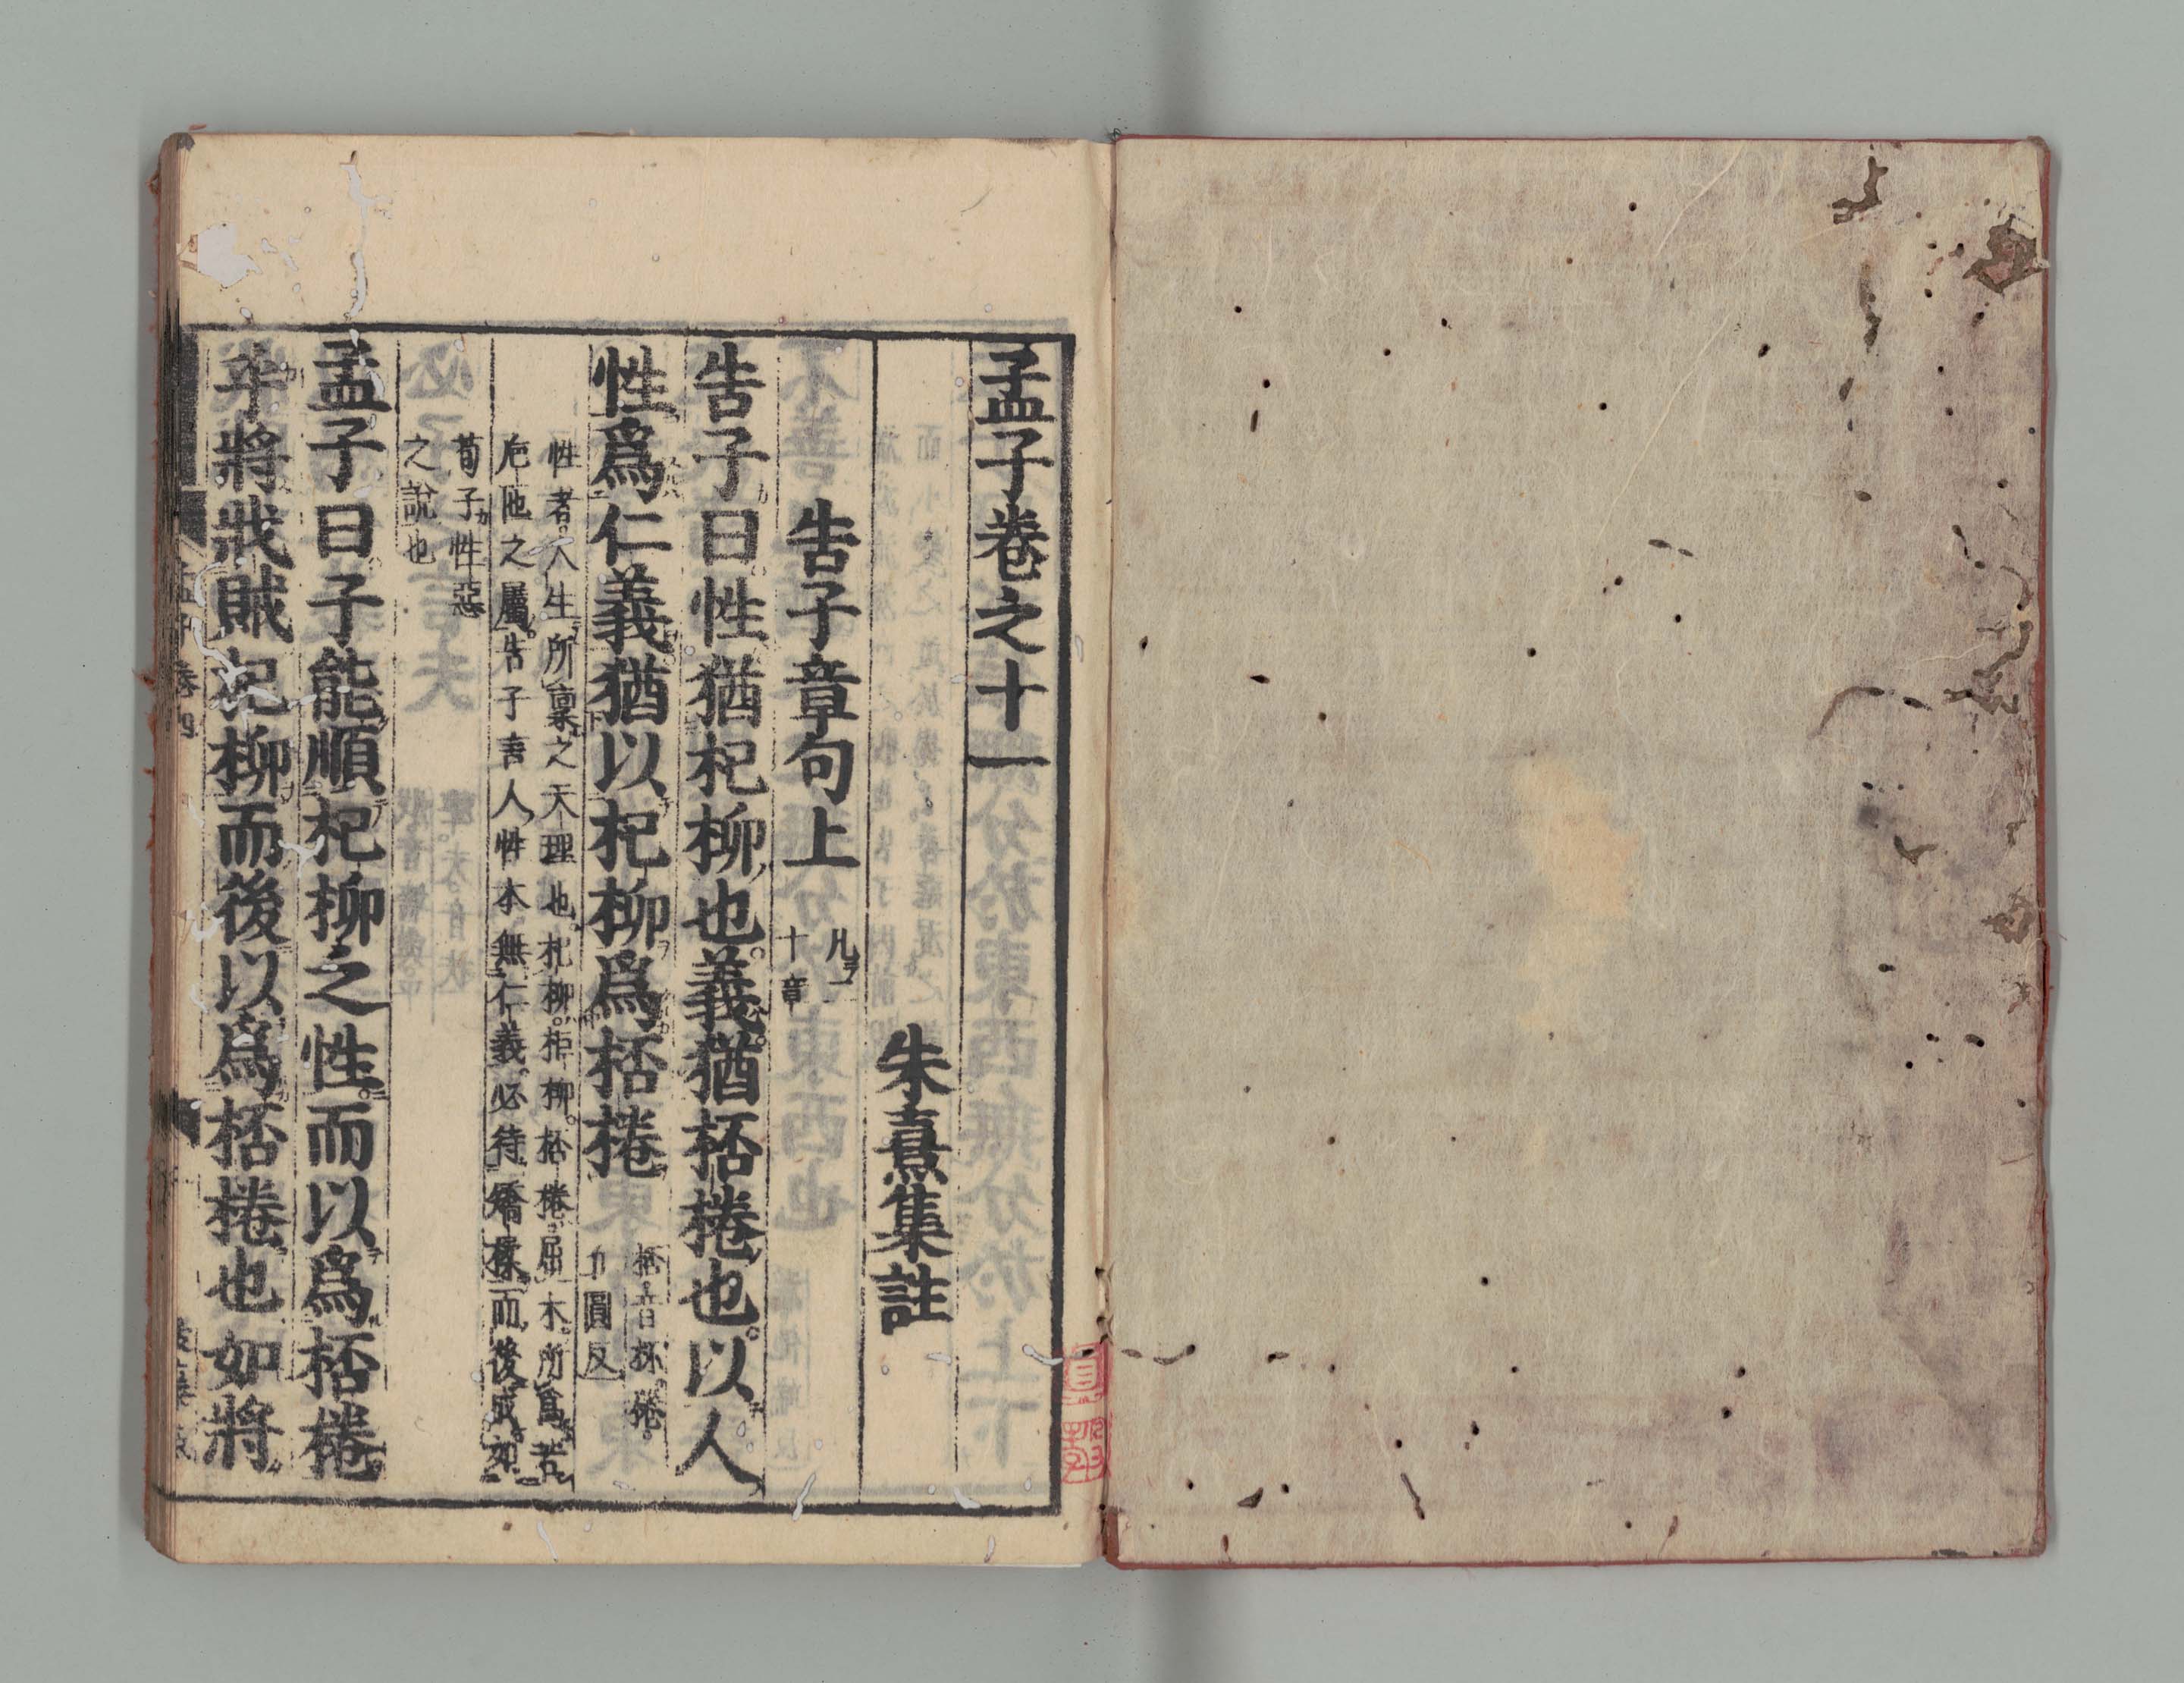 孟子卷之十一
朱熹集註
告子章句上
凡二
十章
告子曰性猶杞柳也義猶桮棬也以人
性爲仁義猶以杞柳爲桮棬
桮音杯棬
圓反
性者人生所稟之天理也杞柳柜柳桮棬屈木所爲若
卮匜之屬告子言人性本無仁義必待矯揉而後成如
荀子性惡
之說也
孟子曰子能順杞柳之性而以爲桮棬
乎將戕賊杞柳而後以爲桮棬也如將